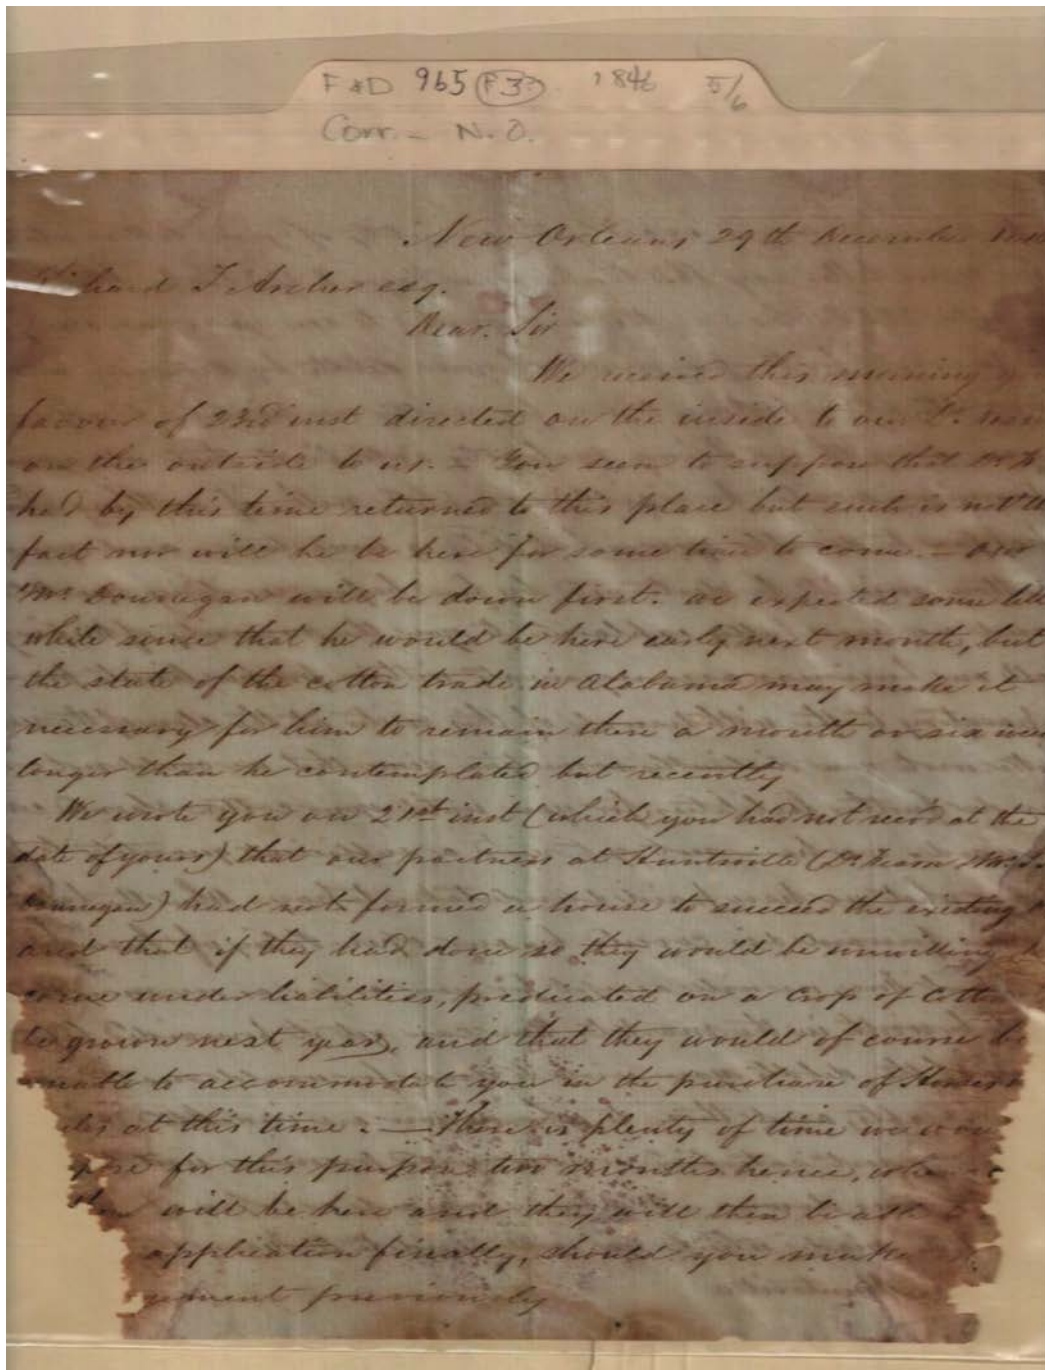 F&D 965 F33 1846 5/6
Corr. - N.O.
New Orleans 29th December
T. Archer esq.
Dear. Sir
We received this morning
favour of 23rd inst directed on the inside to our Dr.
on the outside to us. - You seem to suppose that
had by this time returned to this place but such is not
fact nor will he be here for some time to come. - Our
Mr. Donnegan will be down first. we expected some
while since that he would be here early next month, but
the state of the cotton trade in Alabama may make it
necessary for him to remain there a month or six
longer than he contemplated but recently
We wrote you on 21st inst (which you had not recd at the
date of yours) that our partners at Huntsville (Dr.
Donnegan) had not formed a house to succeed the existing
and that if they had done so they would be unwilling
come under liabilities, predicated on a crop of
be grown next year, and that they would of course be
unable to accommodate you in the purchase of
at this time. - There is plenty of time we
for this purpose two months hence,
will be here and they will then be able
application finally, should you make
previously